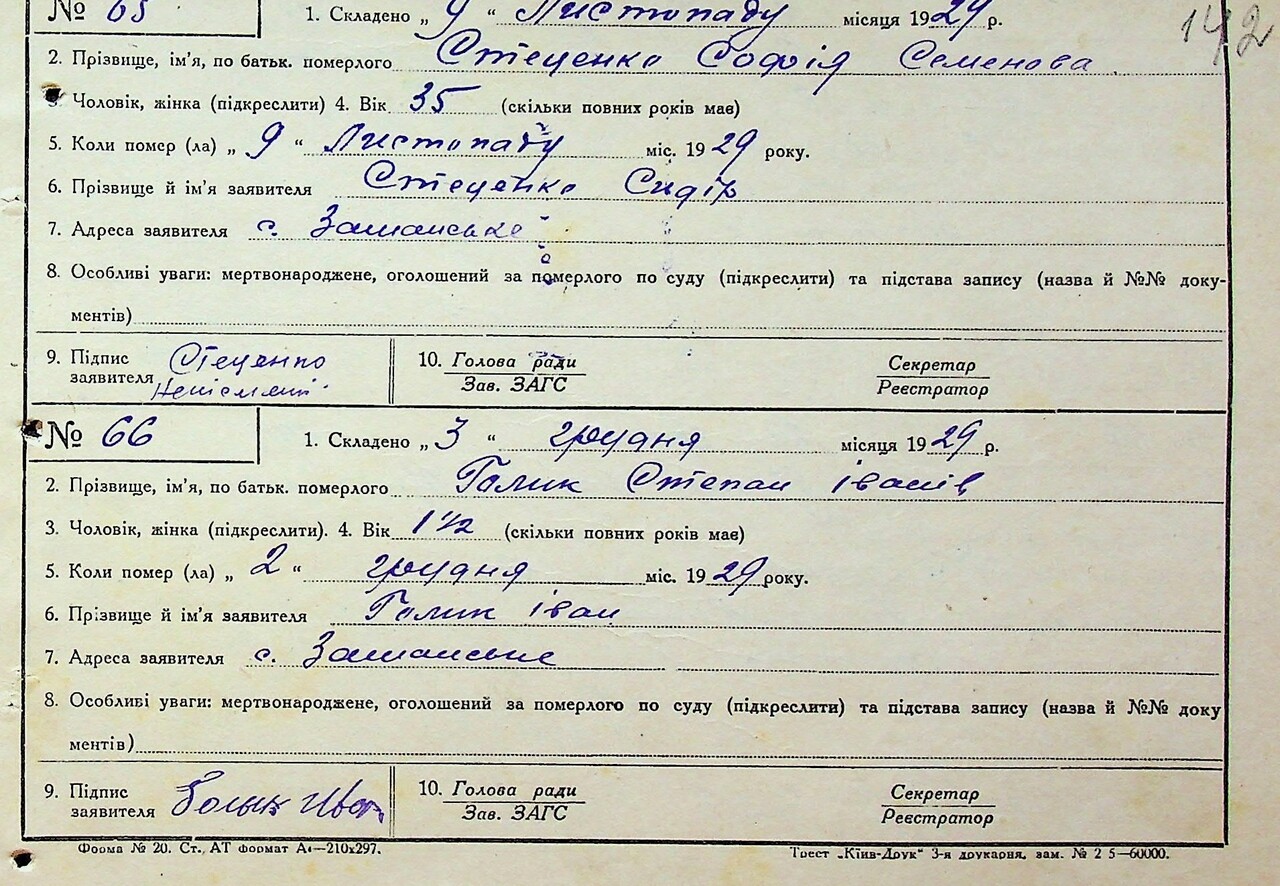 № 65 1. Складено „ 9 “ Листопаду місяця 1929 р. 142
2. Прізвище, ім'я, по батьк. померлого Стеценко Софія Семенова
3. Чоловік, жінка (підкреслити) 4. Вік 35 (скільки повних років має)
5. Коли помер (ла) „ 9 “ Листопаду міс. 1929 року.
6. Прізвище й ім'я заявителя Стеценко Сидір
7. Адреса заявителя с. Заманське
8. Особливі уваги: мертвонароджене, оголошений за померлого по суду (підкреслити) та підстава запису (назва й №№ доку-
ментів)
9. Підпис заявителя Стеценко Неписмений 10. Голова ради Зав. ЗАГС Секретар Реєстратор
№ 66 1. Складено „ 3 “ грудня місяця 1929 р.
2. Прізвище, ім'я, по батьк. померлого Голик Степан Іванів
3. Чоловік, жінка (підкреслити). 4. Вік 1 1/2 (скільки повних років має)
5. Коли помер (ла) „ 2 “ грудня міс. 1929 року.
6. Прізвище й ім'я заявителя Голик Іван
7. Адреса заявителя с. Заманське
8. Особливі уваги: мертвонароджене, оголошений за померлого по суду (підкреслити) та підстава запису (назва й №№ доку
ментів)
9. Підпис заявителя Голик Иван 10. Голова ради Зав. ЗАГС Секретар Реєстратор
Форма № 20. Ст. АТ Формат А4—210х297. Трест „Київ-Друк“ 3-я друкарня, зам. № 2 5—60000.